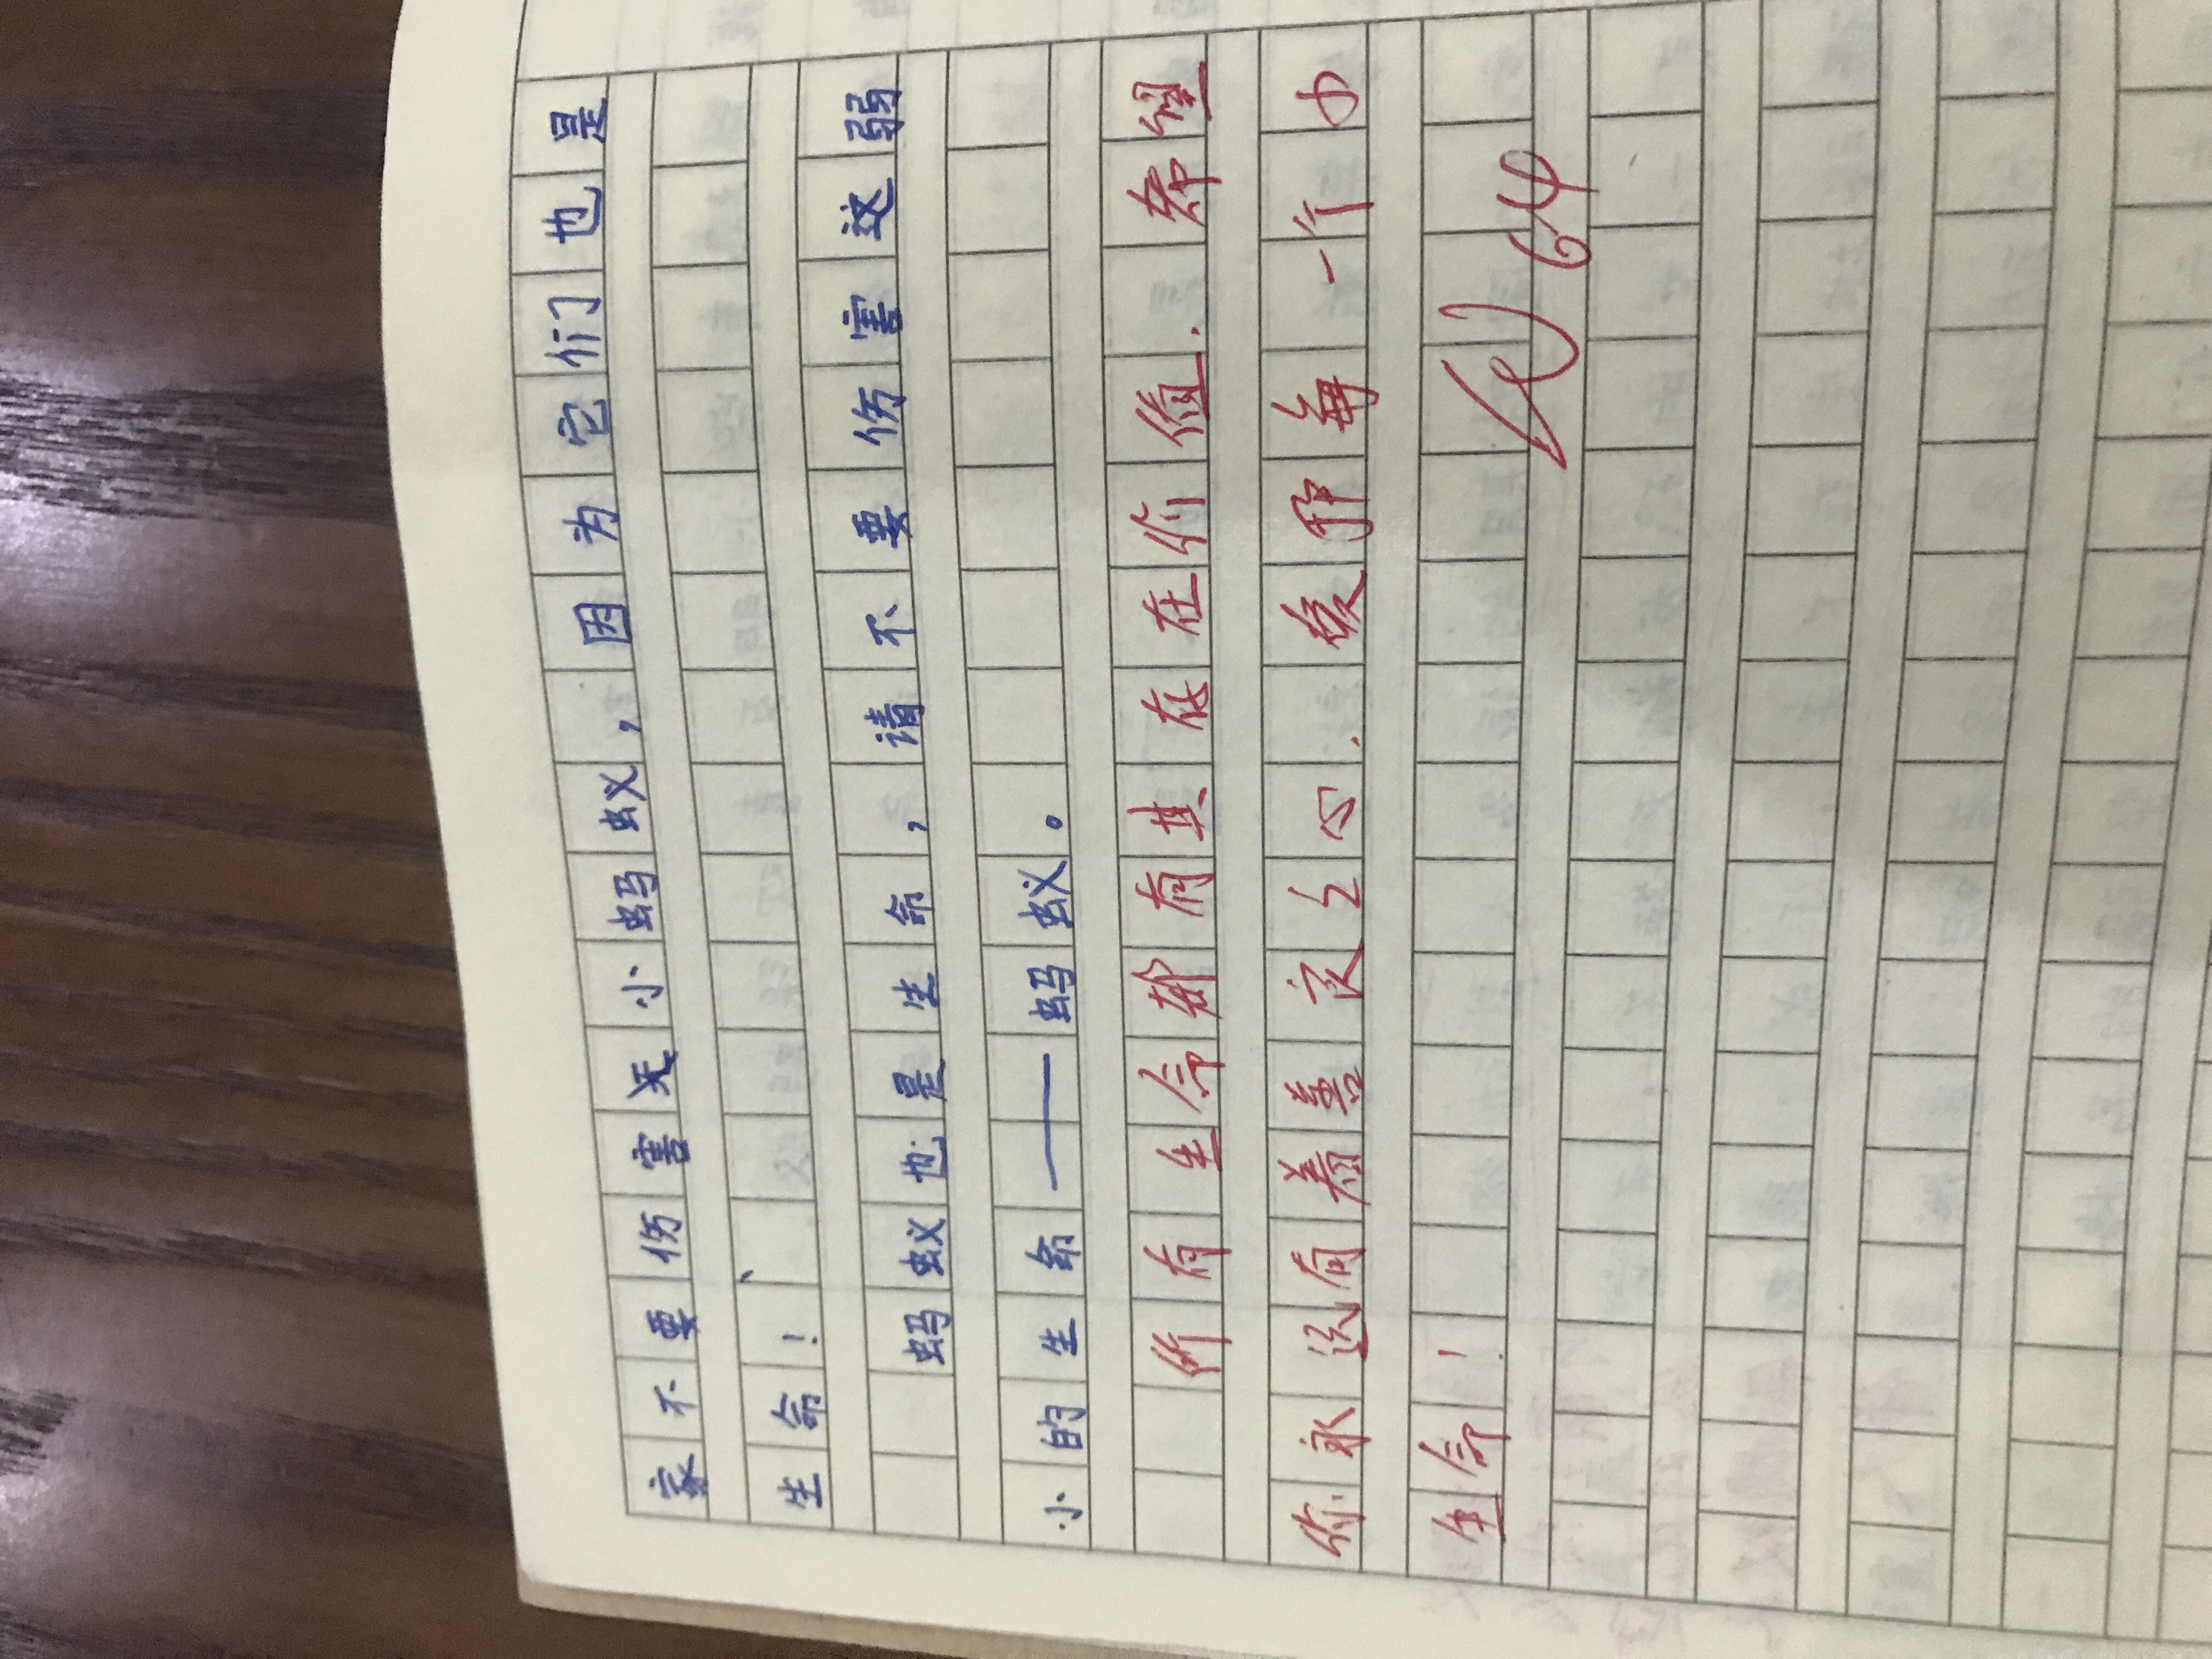 家不要伤害小蚂蚁，因为它们也是
生命！
蚂蚁也是生命，请不要伤害这弱
小的生命——蚂蚁。
所有生命都有其存在价值.希望
你永远有着善良之心.爱护每一个小
生命！
64